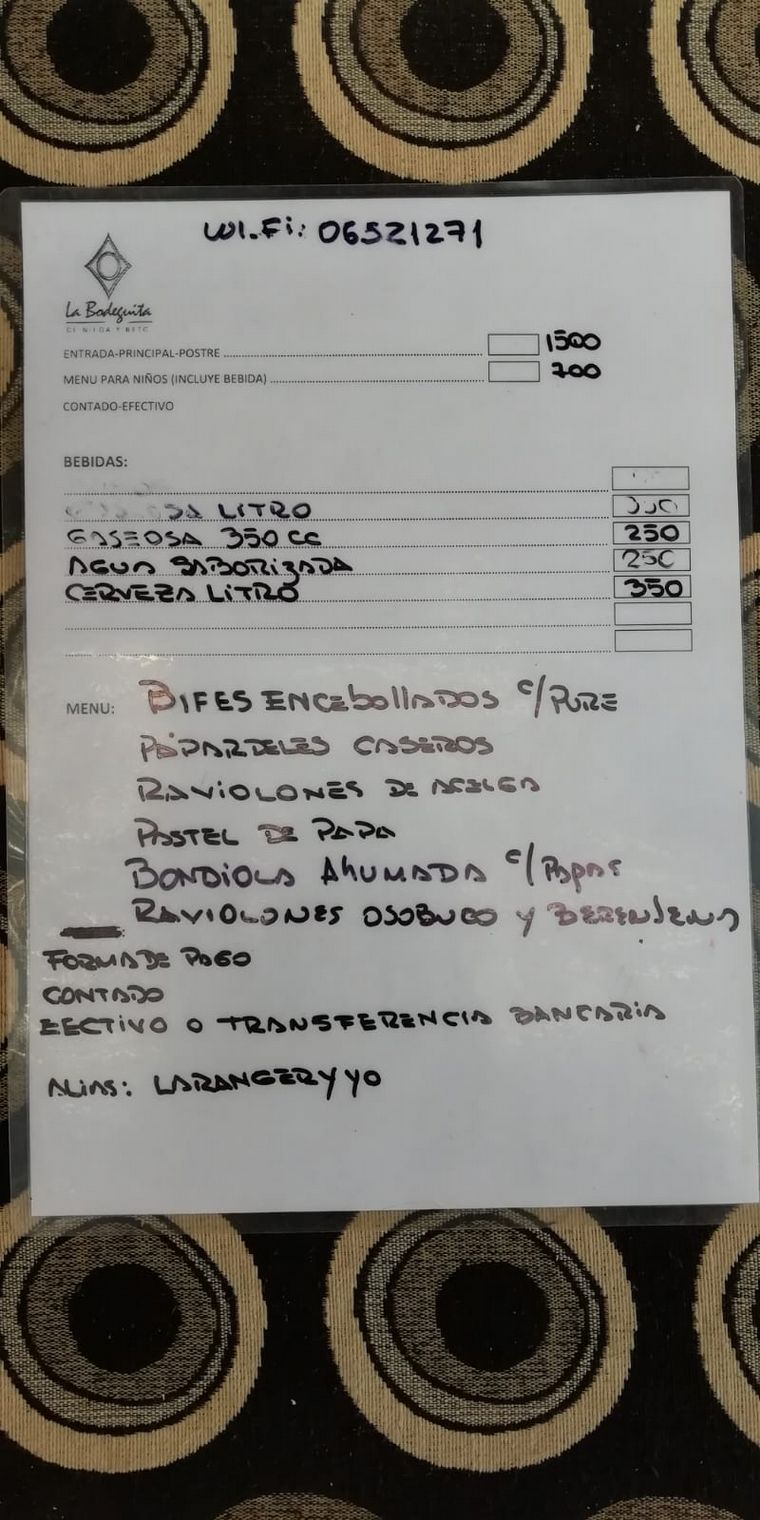 WI-Fi: 06521271
La Bodeguita
ENTRADA-PRINCIPAL-POSTRE 1500
MENU PARA NIÑOS (INCLUYE BEBIDA) 700
CONTADO-EFECTIVO
BEBIDAS:
LITRO
GASEOSA 350 CC 250
AGUA SABORIZADA 250
CERVEZA LITRO 350
MENU: BIFES ENCEBOLLADOS C/PURE
PAPARDELES CASEROS
RAVIOLONES DE ACELGA
PASTEL DE PAPA
BONDIOLA AHUMADA C/PAPAS
RAVIOLONES OSOBUCO Y BERENJENA
FORMA DE PAGO
CONTADO
EFECTIVO O TRANSFERENCIA BANCARIA
ALIAS: LARANGERYYO